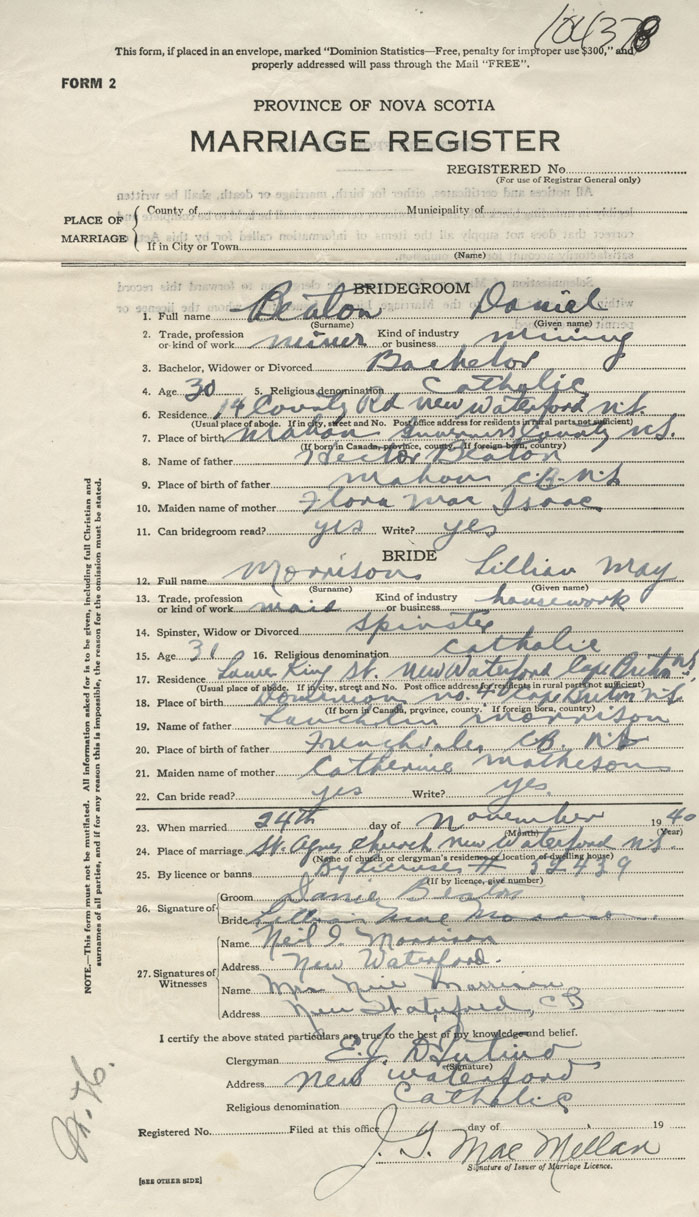 104378
This form, if placed in an envelope, marked "Dominion Statistics—Free, penalty for improper use $300," and
properly addressed will pass through the Mail "FREE".
FORM 2
PROVINCE OF NOVA SCOTIA
MARRIAGE REGISTER
REGISTERED No.
(For use of Registrar General only)
PLACE OF MARRIAGE
County of Municipality of
If in City or Town
(Name)
BRIDEGROOM
1. Full name Beaton Daniel
(Surname) (Given name)
2. Trade, profession or kind of work miner Kind of industry or business mining
3. Bachelor, Widower or Divorced Bachelor
4. Age 30 5. Religious denomination Catholic
6. Residence 14 County Rd New Waterford N.S.
(Usual place of abode. If in city, street and No. Post office address for residents in rural parts not sufficient)
7. Place of birth Mabou Inverness County N.S.
(If born in Canada, province, county. If foreign born, country)
8. Name of father Hector Beaton
9. Place of birth of father Mabou C.B. N.S
10. Maiden name of mother Flora Mac Isaac
11. Can bridegroom read? yes Write? yes
BRIDE
12. Full name Morrison Lillian May
(Surname) (Given name)
13. Trade, profession or kind of work maid Kind of industry or business housework
14. Spinster, Widow or Divorced Spinster
15. Age 31 16. Religious denomination Catholic
17. Residence Lower King St. New Waterford Cape Breton N.S
(Usual place of abode. If in city, street and No. Post office address for residents in rural parts not sufficient)
18. Place of birth Dominion Breton N.S
(If born in Canada, province, county. If foreign born, country)
19. Name of father Lauchlin Morrison
20. Place of birth of father Frenchvale C.B. N.S
21. Maiden name of mother Catherine Matheson
22. Can bride read? yes Write? yes.
23. When married 24th day of November 1940
(Month) (Year)
24. Place of marriage St. Agnes Church New Waterford N.S.
(Name of church or clergyman's residence or location of dwelling house)
25. By licence or banns By License # 52439
(If by licence, give number)
26. Signature of Groom Daniel Beaton
Bride Lillian Mae Morrison
27. Signatures of Witnesses
Name Neil J. Morrison
Address New Waterford.
Name Mrs Neil Morrison
Address New Waterford, C B
I certify the above stated particulars are true to the best of my knowledge and belief.
Clergyman E.J.
(Signature)
Address New Waterford
Religious denomination Catholic
Registered No. Filed at this office day of 19
J. G. MacMellan
Signature of Issuer of Marriage Licence.
[SEE OTHER SIDE]
NOTE.—This form must not be mutilated. All information asked for is to be given, including full Christian and
surnames of all parties, and if for any reason this is impossible, the reason for the omission must be stated.